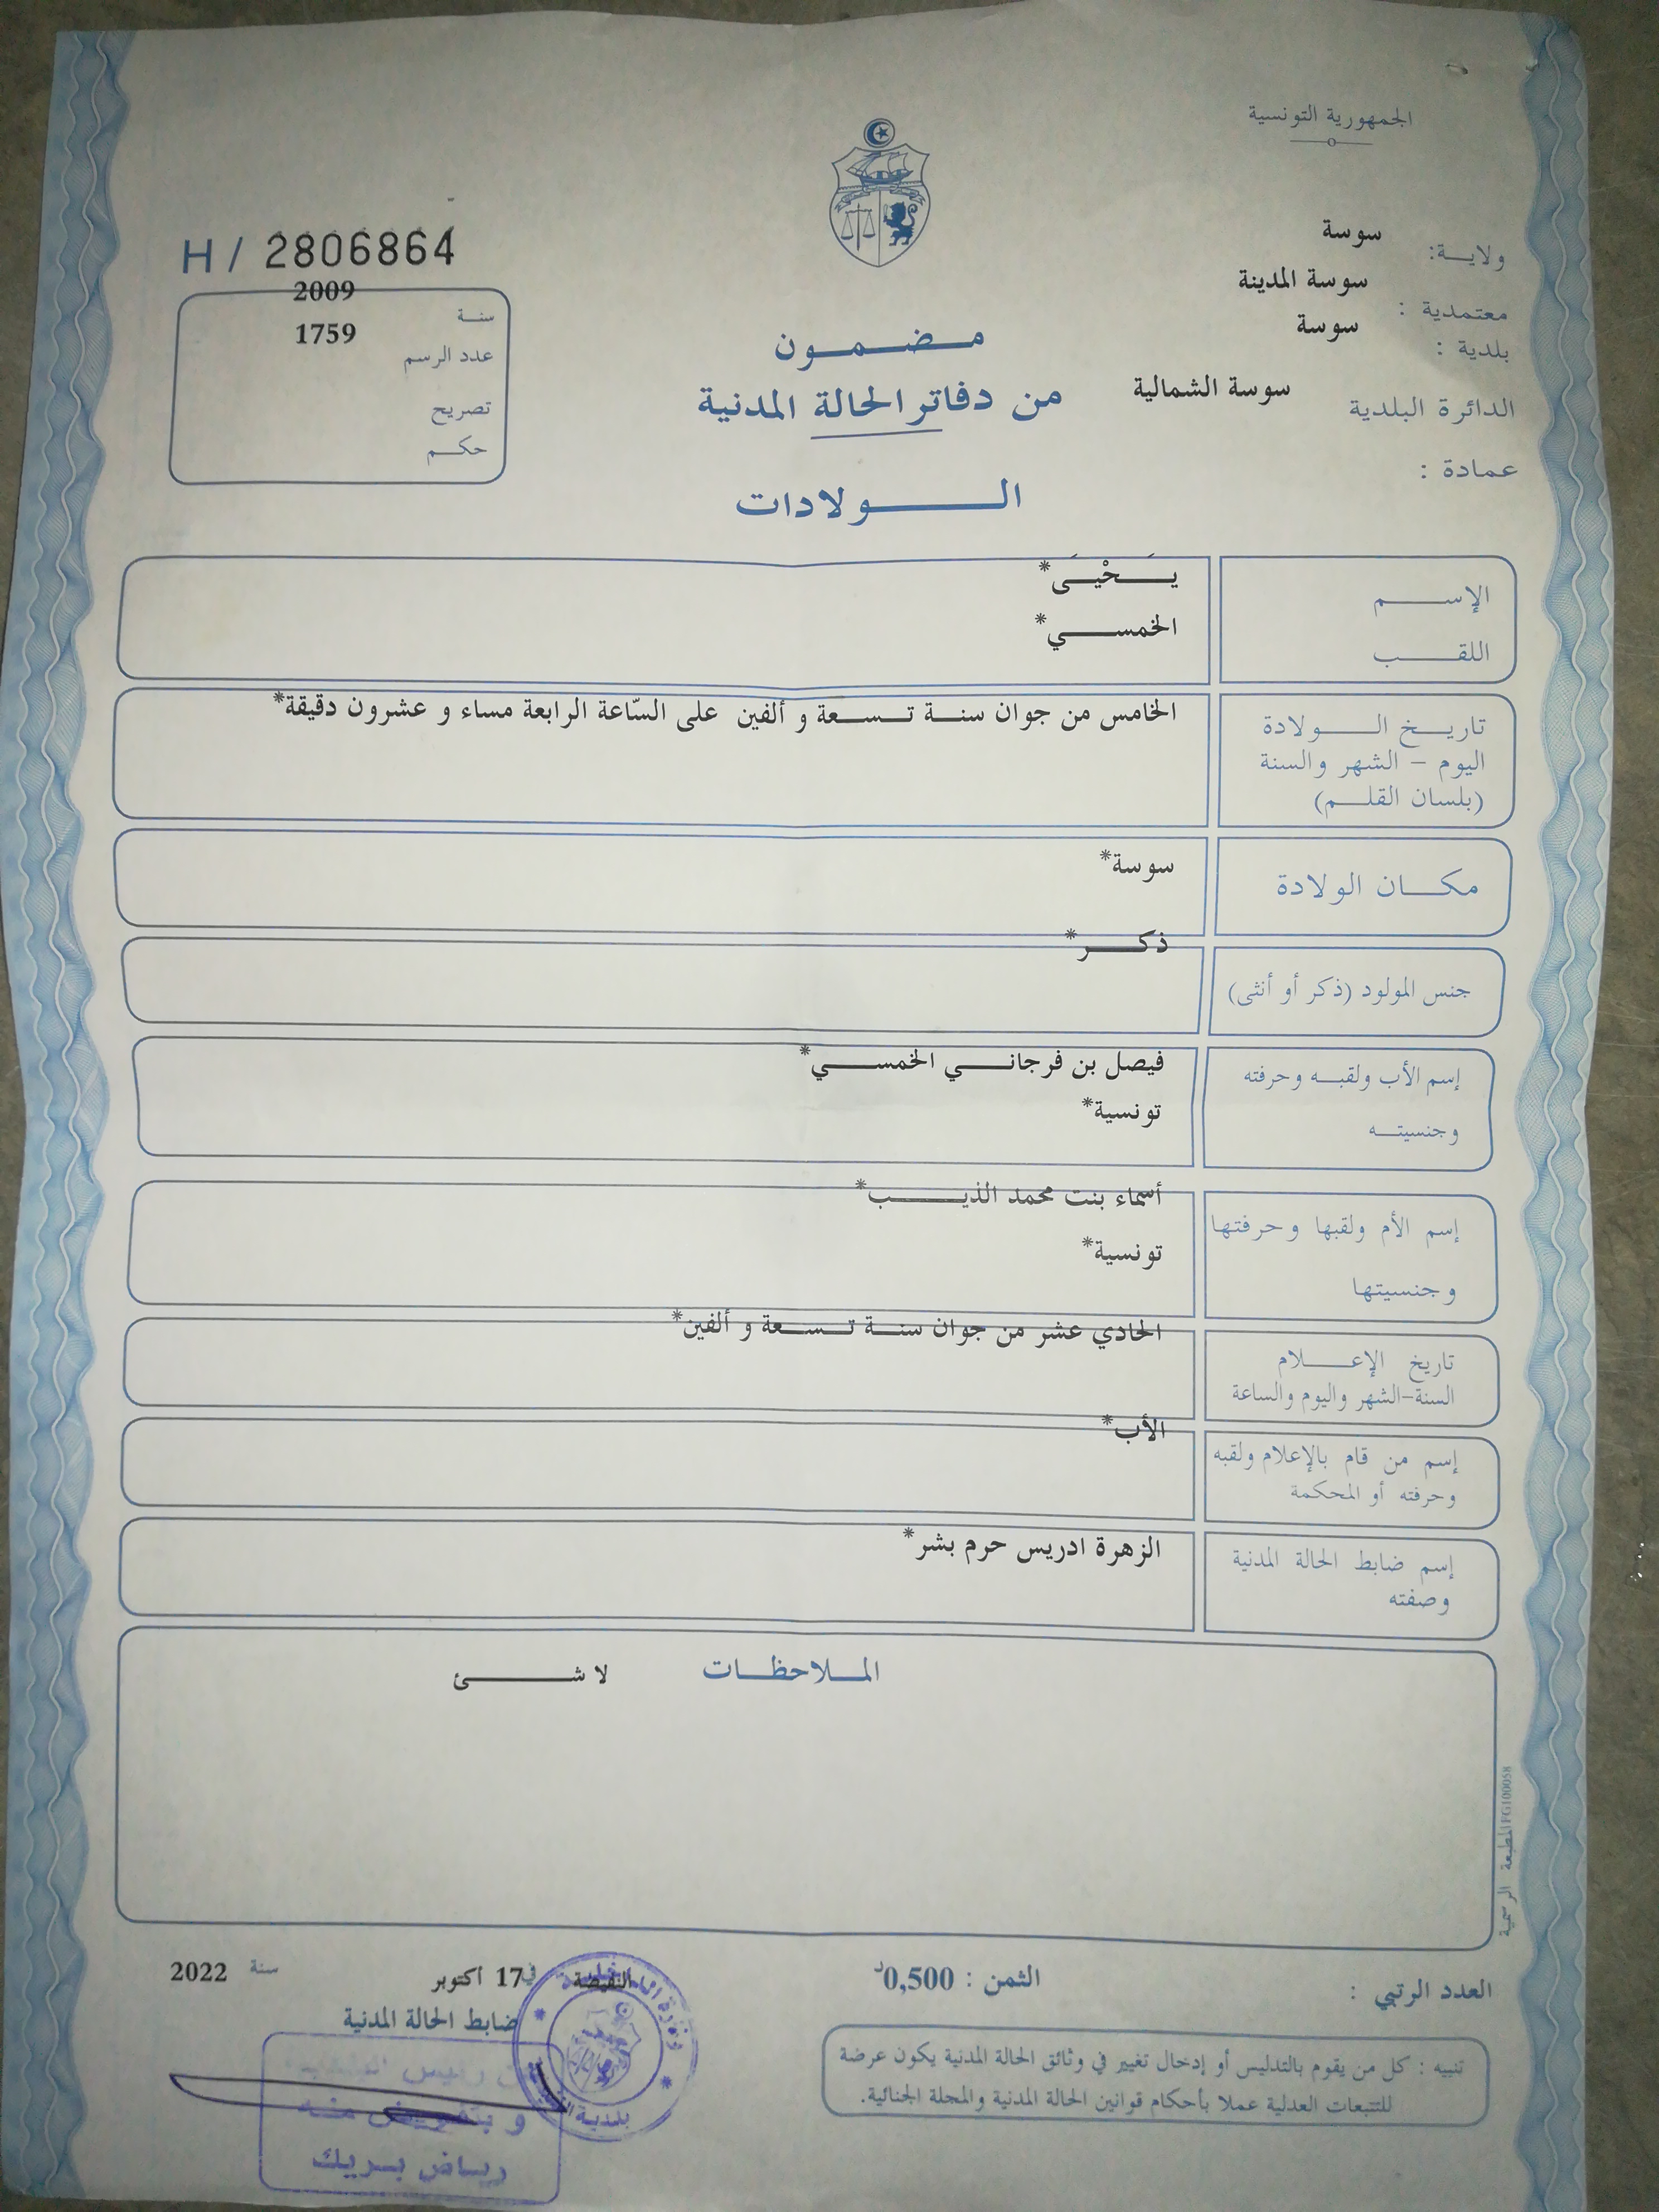 الجمهورية التونسية
ولايـــة: سوسة
معتمدية : سوسة المدينة
بلدية : سوسة
الدائرة البلدية سوسة الشمالية
عمادة :
H / 2806864
سنـة 2009
عدد الرسم 1759
تصريح
حكـم
مـضـمـون
من دفاتر الحالة المدنية
الـولادات
الإســـم يَـحْيَـى*
اللقـــب الخمســـي*
تاريـخ الـولادة الخامس من جوان سنـة تـسـعة و ألفين على السّاعة الرابعة مساء و عشرون دقيقة*
اليوم – الشهر والسنة
(بلسان القلـم)
مكـان الولادة سوسة*
جنس المولود (ذكر أو أنثى) ذكـــر*
إسم الأب ولقبـه وحرفته فيصل بن فرجانـي الخمســـي*
وجنسيتـه تونسية*
إسم الأم ولقبها وحرفتها أسماء بنت محمد الذيـــب*
وجنسيتها تونسية*
تاريخ الإعـلام الحادي عشر من جوان سنـة تـسـعة و ألفين*
السنة-الشهر واليوم والساعة
إسم من قام بالإعلام ولقبه الأب*
وحرفته أو المحكمة
إسم ضابط الحالة المدنية الزهرة ادريس حرم بشر*
وصفته
المـلاحظـات لا شـــئ
المطبعة الرسمية PG100058
العدد الرتبي :
الثمن : 0,500د
النفيضة في 17 أكتوبر سنة 2022
ضابط الحالة المدنية
تنبيه : كل من يقوم بالتدليس أو إدخال تغيير في وثائق الحالة المدنية يكون عرضة
للتتبعات العدلية عملا بأحكام قوانين الحالة المدنية والمجلة الجنائية.
وزارة الداخلية
بلدية
رئيس
و بتفويض منه
رياض بريك